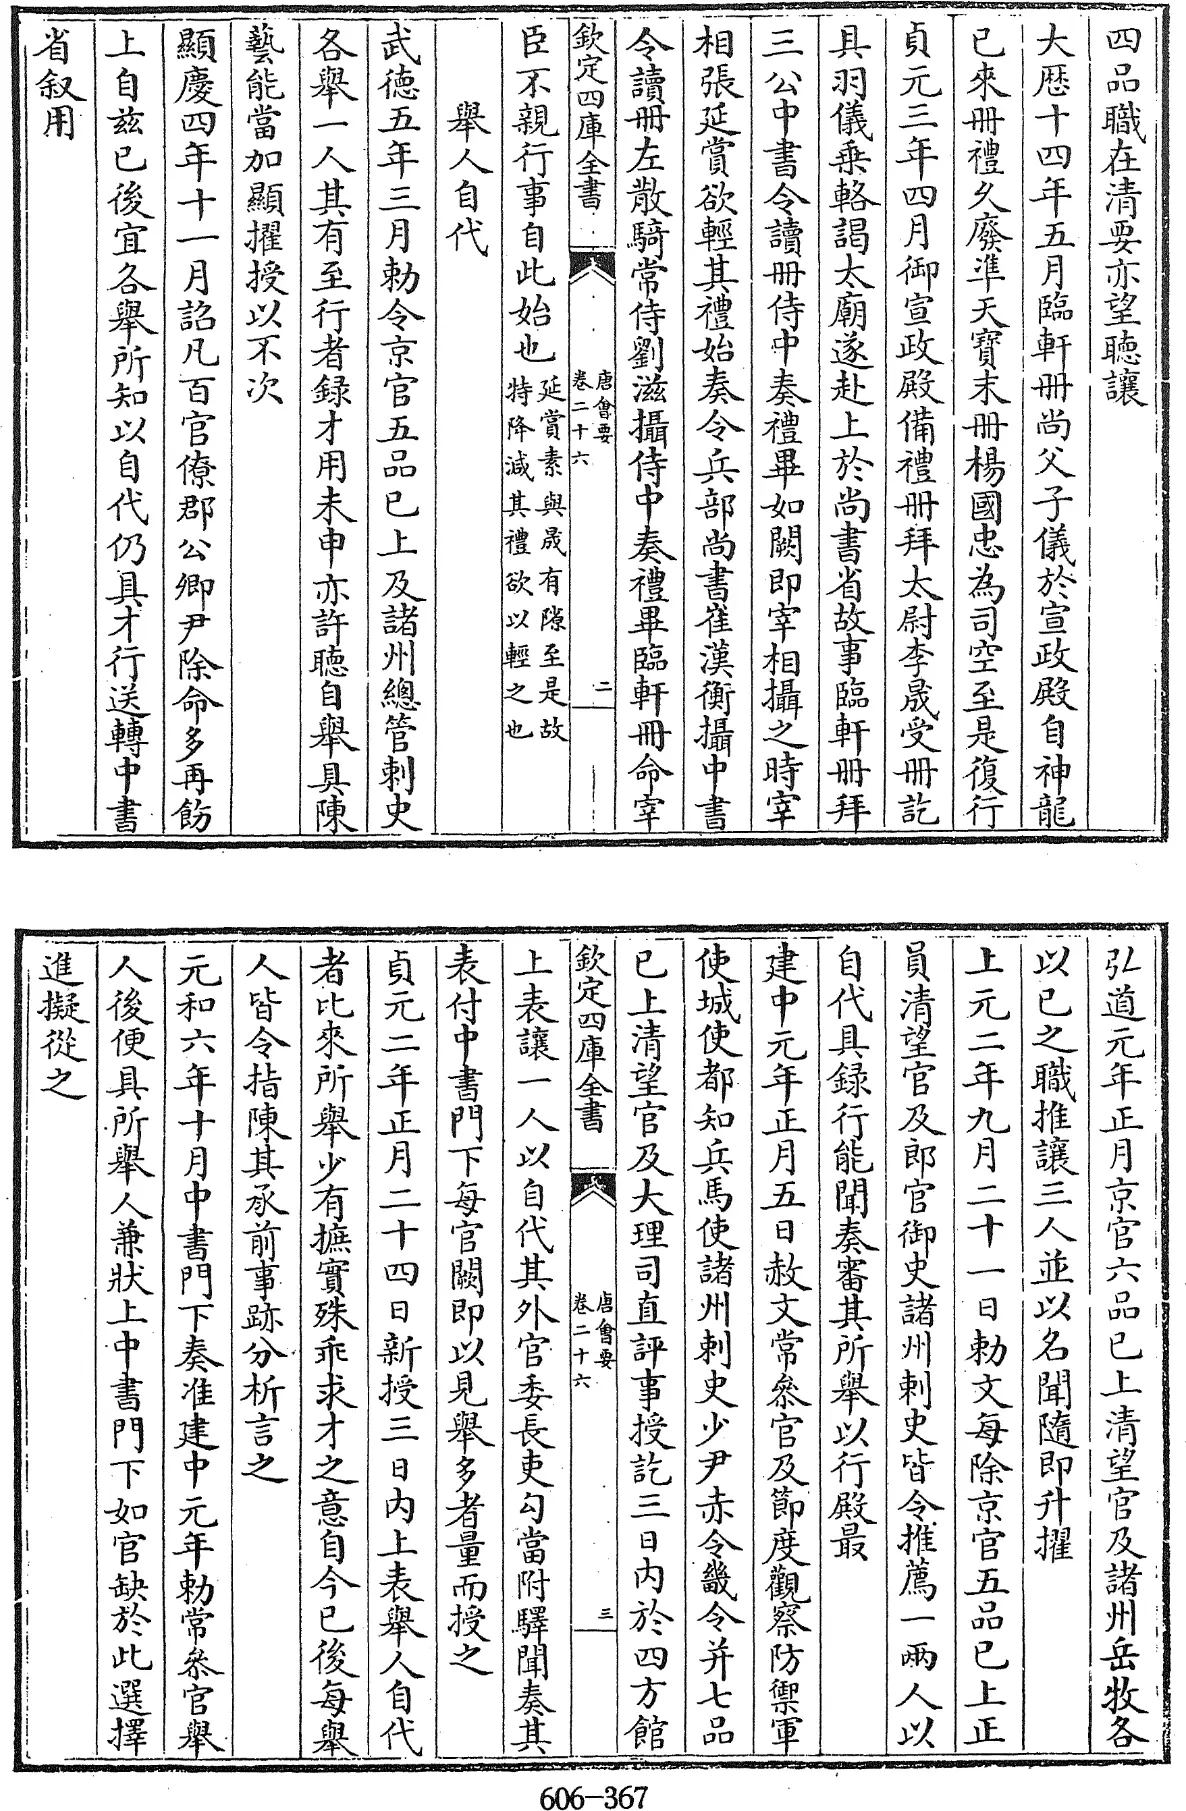 四品職在清要亦望聽讓
大厯十四年五月臨軒冊尚父子儀於宣政殿自神龍
已來冊禮久廢準天寶末冊楊國忠為司空至是復行
貞元三年四月御宣政殿備禮冊拜太尉李晟受冊訖
具羽儀乗輅謁太廟遂赴上於尚書省故事臨軒冊拜
三公中書令讀冊侍中奏禮畢如闕即宰相攝之時宰
相張延賞欲輕其禮始奏令兵部尚書崔漢衡攝中書
令讀冊左散騎常侍劉滋攝侍中奏禮畢臨軒冊命宰
欽定四庫全書
唐會要
卷二十六
二
臣不親行事自此始也延賞素與晟有隙至是故
特降減其禮欲以輕之也
舉人自代
武徳五年三月勅令京官五品已上及諸州總管刺史
各舉一人其有至行者録才用未申亦許聽自舉具陳
藝能當加顯擢授以不次
顯慶四年十一月詔凡百官僚郡公卿尹除命多再飭
上自兹已後宜各舉所知以自代仍具才行送轉中書
省叙用
弘道元年正月京官六品已上清望官及諸州岳牧各
以已之職推讓三人並以名聞隨即升擢
上元二年九月二十一日勅文每除京官五品已上正
員清望官及郎官御史諸州刺史皆令推薦一兩人以
自代具録行能聞奏審其所舉以行殿最
建中元年正月五日赦文常叅官及節度觀察防禦軍
使城使都知兵馬使諸州刺史少尹赤令畿令并七品
已上清望官及大理司直評事授訖三日内於四方館
欽定四庫全書
唐會要
卷二十六
三
上表讓一人以自代其外官委長吏勾當附驛聞奏其
表付中書門下每官闕即以見舉多者量而授之
貞元二年正月二十四日新授三日内上表舉人自代
者比來所舉少有摭實殊乖求才之意自今已後每舉
人皆令指陳其承前事跡分析言之
元和六年十月中書門下奏准建中元年勅常叅官舉
人後便具所舉人兼狀上中書門下如官缺於此選擇
進擬從之
606-367